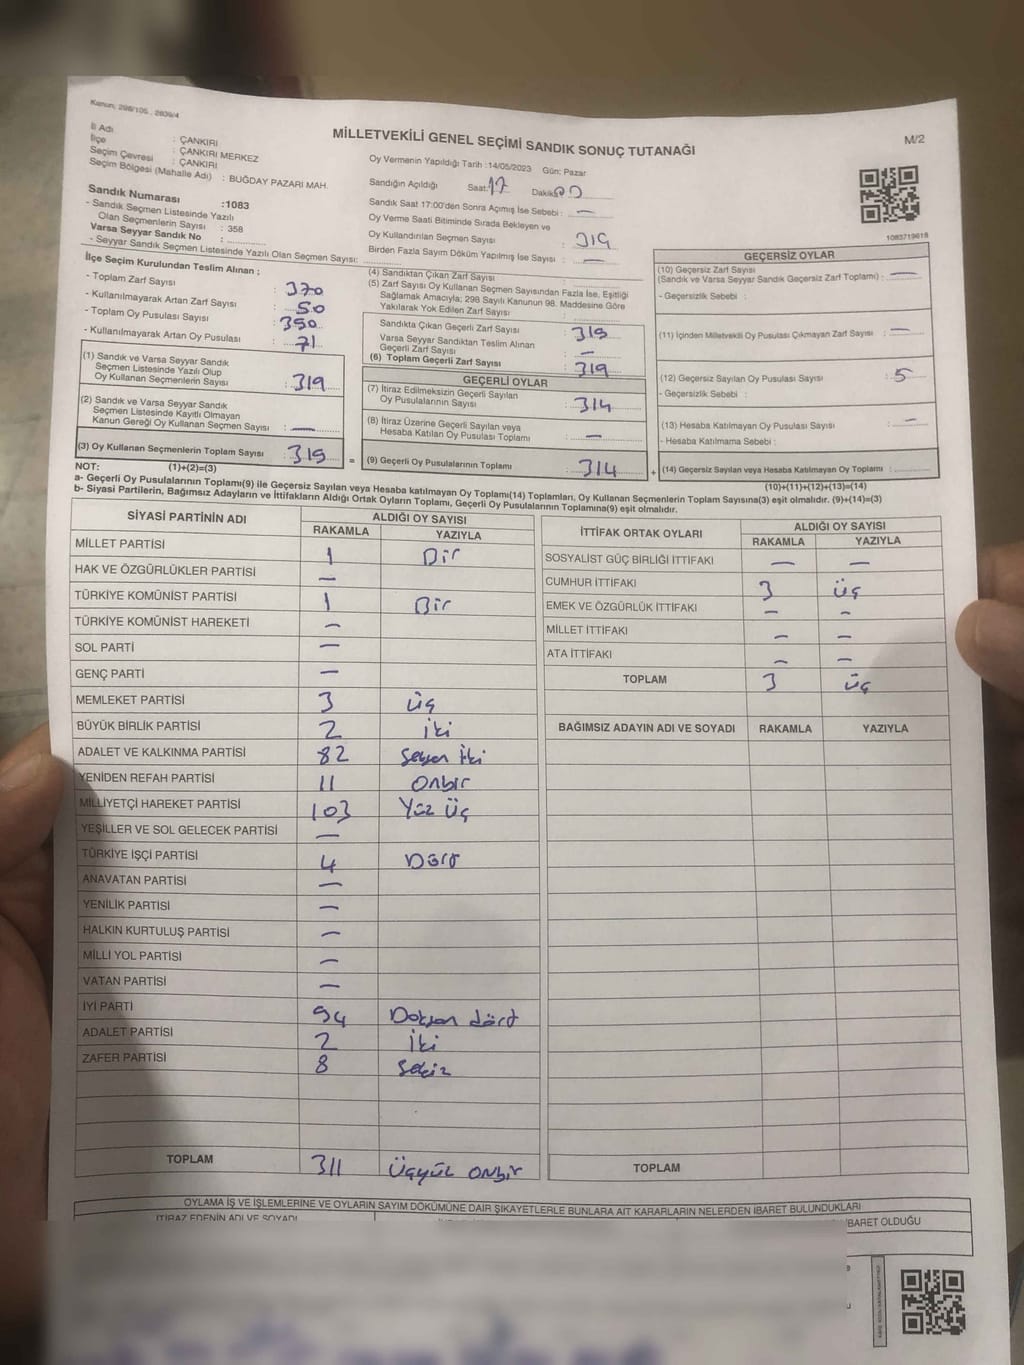 Kanun, 298/105 , 2839/4
MİLLETVEKİLİ GENEL SEÇİMİ SANDIK SONUÇ TUTANAĞI
M/2
İl Adı : ÇANKIRI
İlçe : ÇANKIRI MERKEZ
Seçim Çevresi : ÇANKIRI
Seçim Bölgesi (Mahalle Adı) : BUĞDAY PAZARI MAH.
Sandık Numarası :1083
- Sandık Seçmen Listesinde Yazılı
Olan Seçmenlerin Sayısı : 358
Varsa Seyyar Sandık No :
- Seyyar Sandık Seçmen Listesinde Yazılı Olan Seçmen Sayısı:
İlçe Seçim Kurulundan Teslim Alınan ;
- Toplam Zarf Sayısı : 370
- Kullanılmayarak Artan Zarf Sayısı : 50
- Toplam Oy Pusulası Sayısı : 390
- Kullanılmayarak Artan Oy Pusulası : 71
(1) Sandık ve Varsa Seyyar Sandık
Seçmen Listesinde Yazılı Olup
Oy Kullanan Seçmenlerin Sayısı : 319
(2) Sandık ve Varsa Seyyar Sandık
Seçmen Listesinde Kayıtlı Olmayan
Kanun Gereği Oy Kullanan Seçmen Sayısı : —
(3) Oy Kullanan Seçmenlerin Toplam Sayısı : 319
Oy Vermenin Yapıldığı Tarih :14/05/2023 Gün: Pazar
Sandığın Açıldığı Saat:17 Dakika:00
Sandık Saat 17:00'den Sonra Açımış İse Sebebi : —
Oy Verme Saati Bitiminde Sırada Bekleyen ve
Oy Kullandırılan Seçmen Sayısı : 319
Birden Fazla Sayım Döküm Yapılmış İse Sayısı : —
(4) Sandıktan Çıkan Zarf Sayısı :
(5) Zarf Sayısı Oy Kullanan Seçmen Sayısından Fazla İse, Eşitliği
Sağlamak Amacıyla; 298 Sayılı Kanunun 98. Maddesine Göre
Yakılarak Yok Edilen Zarf Sayısı :
Sandıkta Çıkan Geçerli Zarf Sayısı : 319
Varsa Seyyar Sandıktan Teslim Alınan
Geçerli Zarf Sayısı : —
(6) Toplam Geçerli Zarf Sayısı : 319
GEÇERLİ OYLAR
(7) İtiraz Edilmeksizin Geçerli Sayılan
Oy Pusulalarının Sayısı : 314
(8) İtiraz Üzerine Geçerli Sayılan veya
Hesaba Katılan Oy Pusulası Toplamı : —
= (9) Geçerli Oy Pusulalarının Toplamı : 314
1083719618
GEÇERSİZ OYLAR
(10) Geçersiz Zarf Sayısı
(Sandık ve Varsa Seyyar Sandık Geçersiz Zarf Toplamı) : —
- Geçersizlik Sebebi :
(11) İçinden Milletvekili Oy Pusulası Çıkmayan Zarf Sayısı : —
(12) Geçersiz Sayılan Oy Pusulası Sayısı : 5
- Geçersizlik Sebebi :
(13) Hesaba Katılmayan Oy Pusulası Sayısı : —
- Hesaba Katılmama Sebebi :
+ (14) Geçersiz Sayılan veya Hesaba Katılmayan Oy Toplamı :
NOT: (1)+(2)=(3)
(10)+(11)+(12)+(13)=(14)
a- Geçerli Oy Pusulalarının Toplamı(9) ile Geçersiz Sayılan veya Hesaba katılmayan Oy Toplamı(14) Toplamları, Oy Kullanan Seçmenlerin Toplam Sayısına(3) eşit olmalıdır. (9)+(14)=(3)
b- Siyasi Partilerin, Bağımsız Adayların ve İttifakların Aldığı Ortak Oyların Toplamı, Geçerli Oy Pusulalarının Toplamına(9) eşit olmalıdır.
SİYASİ PARTİNİN ADI ALDIĞI OY SAYISI
RAKAMLA YAZIYLA
MİLLET PARTİSİ 1 Bir
HAK VE ÖZGÜRLÜKLER PARTİSİ —
TÜRKİYE KOMÜNİST PARTİSİ 1 Bir
TÜRKİYE KOMÜNİST HAREKETİ —
SOL PARTİ —
GENÇ PARTİ —
MEMLEKET PARTİSİ 3 üç
BÜYÜK BİRLİK PARTİSİ 2 iki
ADALET VE KALKINMA PARTİSİ 82 Seksen iki
YENİDEN REFAH PARTİSİ 11 Onbir
MİLLİYETÇİ HAREKET PARTİSİ 103 Yüz üç
YEŞİLLER VE SOL GELECEK PARTİSİ —
TÜRKİYE İŞÇİ PARTİSİ 4 Dört
ANAVATAN PARTİSİ —
YENİLİK PARTİSİ —
HALKIN KURTULUŞ PARTİSİ —
MİLLİ YOL PARTİSİ —
VATAN PARTİSİ —
İYİ PARTİ 94 Doksan dört
ADALET PARTİSİ 2 İki
ZAFER PARTİSİ 8 Sekiz
TOPLAM 311 Üçyüz Onbir
İTTİFAK ORTAK OYLARI ALDIĞI OY SAYISI
RAKAMLA YAZIYLA
SOSYALİST GÜÇ BİRLİĞİ İTTİFAKI — —
CUMHUR İTTİFAKI 3 üç
EMEK VE ÖZGÜRLÜK İTTİFAKI — —
MİLLET İTTİFAKI — —
ATA İTTİFAKI — —
TOPLAM 3 üç
BAĞIMSIZ ADAYIN ADI VE SOYADI RAKAMLA YAZIYLA
TOPLAM
OYLAMA İŞ VE İŞLEMLERİNE VE OYLARIN SAYIM DÖKÜMÜNE DAİR ŞİKAYETLERLE BUNLARA AİT KARARLARIN NELERDEN İBARET BULUNDUKLARI
İTİRAZ EDENİN ADI VE SOYADI
İBARET OLDUĞU